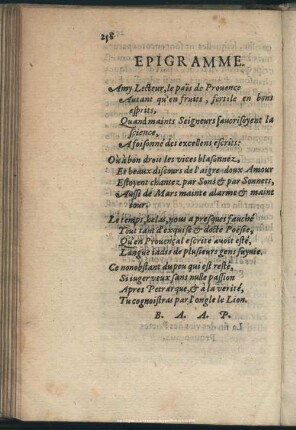 258
EPIGRAMME.
Amy Lecteur, le païs de Prouence
Autant qu'en fruits, fertile en bons
esprits,
Quand maints Seigneurs fauorisoyent la
science,
Afoisonné des excellens escrits:
Où à bon droit les vices blasonnez,
Et beaux discours de l'aigre-doux Amour
Estoyent chantez par Sons & par Sonnets,
Aussi de Mars mainte alarme & maint
tour,
Le temps, helas, nous a presques fauché
Tout tant d'exquise & docte Poësie,
Qu'en Prouençal escrite auoit esté,
Langue iadis de plusieurs gens suyuie.
Ce nonobstant du peu qui est resté,
Si iuger veux sans nulle passion
Apres Petrarque, & à la verité,
Tu cognoistras par l'ongle le Lion.
B. A. A. P.